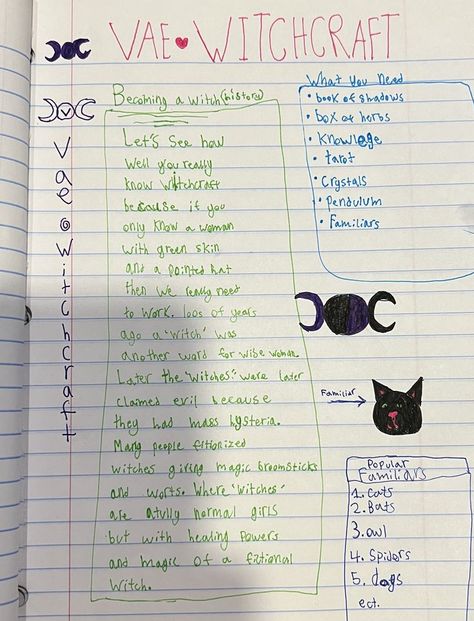 VAE WITCHCRAFT
Vae Witchcraft
Becoming a witch (history)
Let's See how
Well you really
know witchcraft
because if you
only know a woman
with green skin
and a pointed hat
then we really need
to work. 100s of years
ago a "witch" was
another word for wise woman
Later the "witches" were later
claimed evil because
they had mass hysteria.
Many people fitionized
witches giving magic broomsticks
and worts. Where "witches"
are atully normal girls
but with healing powers
and magic of a fictional
witch.
What You Need
• book of shadows
• box of herbs
• Knowlege
• tarot
• Crystals
• Pendulum
• Familiars
Familiar
Popular
Familiars
1. Cats
2. Bats
3. owl
4. Spiders
5. dogs
ect.